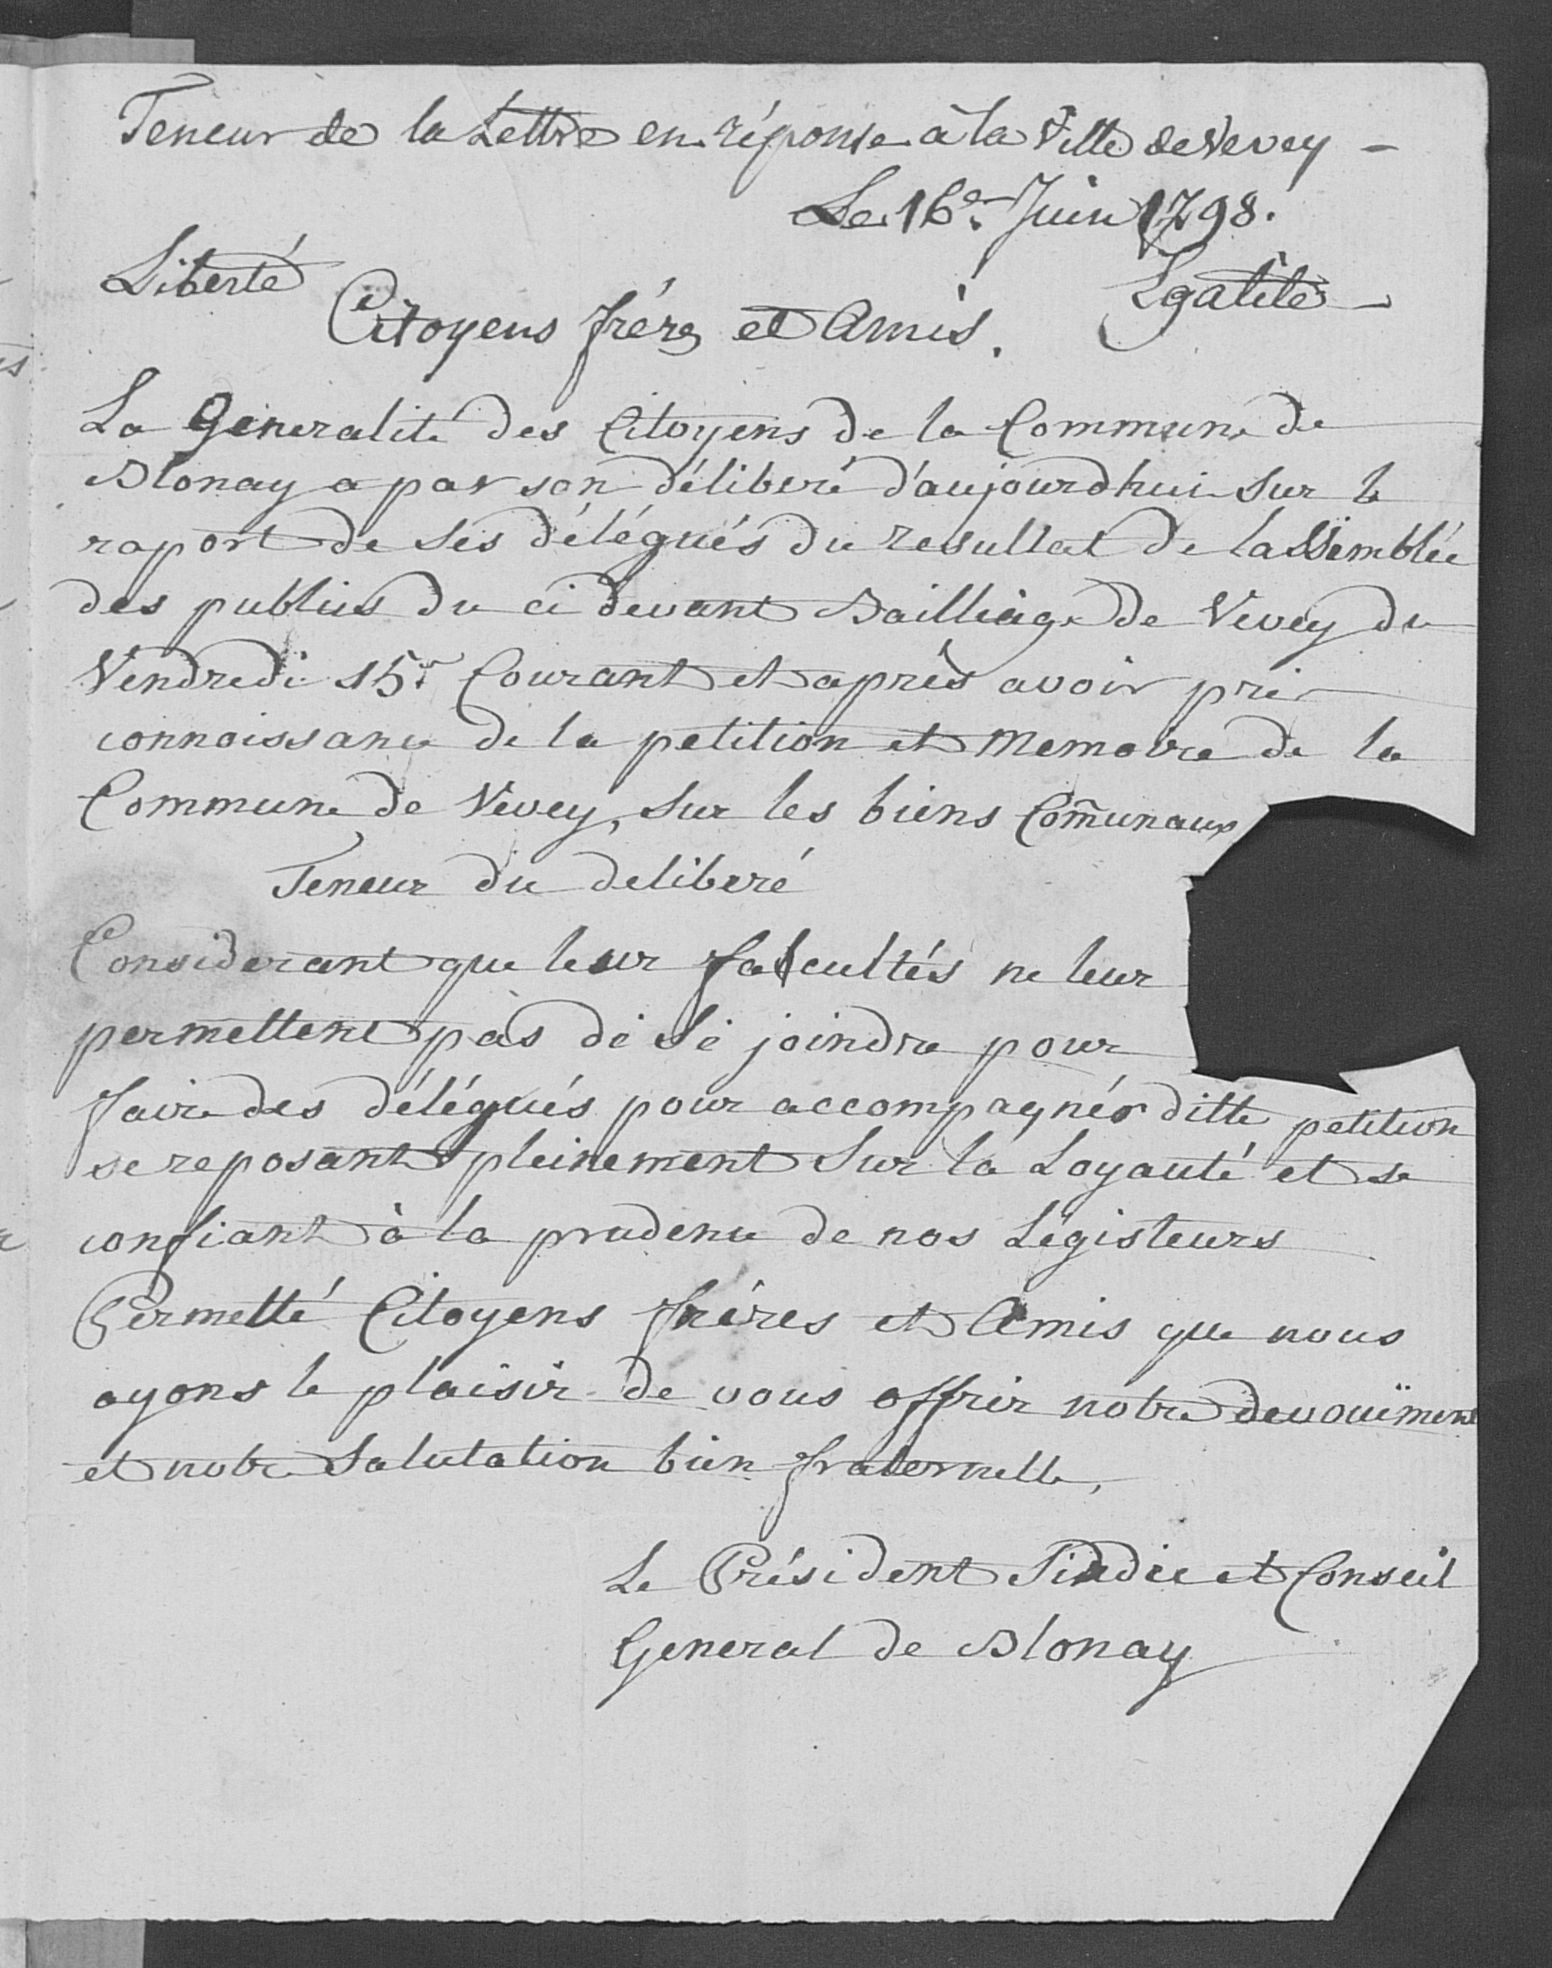 Teneur de la Lettre en réponse à la Ville de Vevey –
Le 16e. Juin 1798.
Liberté Egalité
Citoyens fréres et Amis.
La Generalité des Citoyens de la Commune de
Blonay a par son déliberé d'aujourdhui sur le
raport de ses délégués du resultat de lassemblée
des publics du ci devant Bailliage de Vevey du
Vendredi 15e. Courant et après avoir pris
connoissance de la petition et Memoire de la
Commune de Vevey, sur les biens Com̃unaux
Teneur du deliberé
Considerant que leur facultés ne leur
permettent pas de se joindre pour
faire des délégués pour accompagnér ditte petition
se reposant pleinement sur la Loyauté et se
confiant à la prudence de nos Legisteurs
Permetté Citoyens fréres et Amis que nous
ayons le plaisir de vous offrir notre devouëment
et notre salutation bien fraternelle,
Le Président Sindic et Conseil
General de Blonay